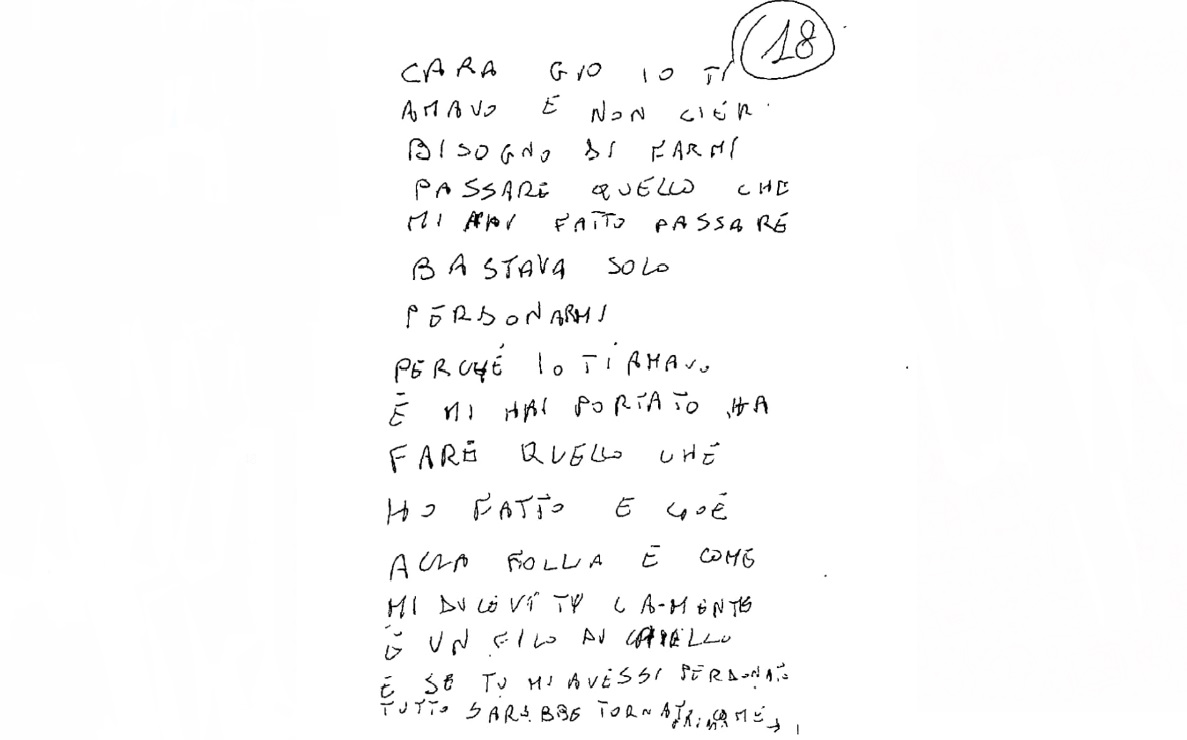 18
CARA GIO IO TI
AMAVO E NON CIER
BISOGNO DI FARMI
PASSARE QUELLO CHE
MI HAI FATTO PASSARE
BASTAVA SOLO
PERDONARMI
PERCHÉ IO TI AMAVO
E MI HAI PORTATO HA
FARE QUELLO CHE
HO FATTO E CIOÈ
ALLA FOLLIA E COME
MI DICEVI TU LA MENTE
E UN FILO DI CAPELLO
E SE TU MI AVESSI PERDONATO
TUTTO SAREBBE